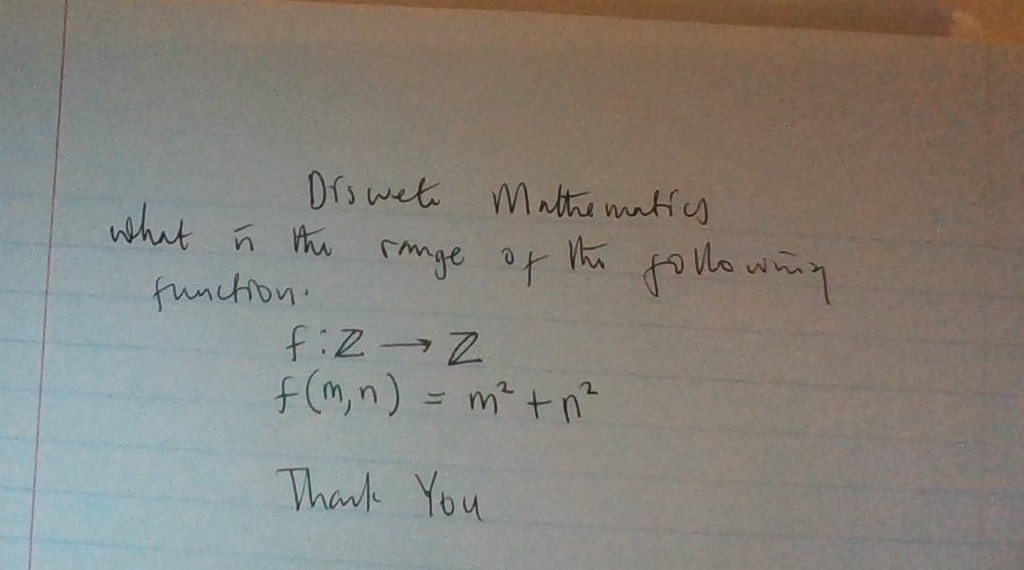 Discrete Mathematics
what is the range of the following
function.
f : Z → Z
f(m,n) = m² + n²
Thank You